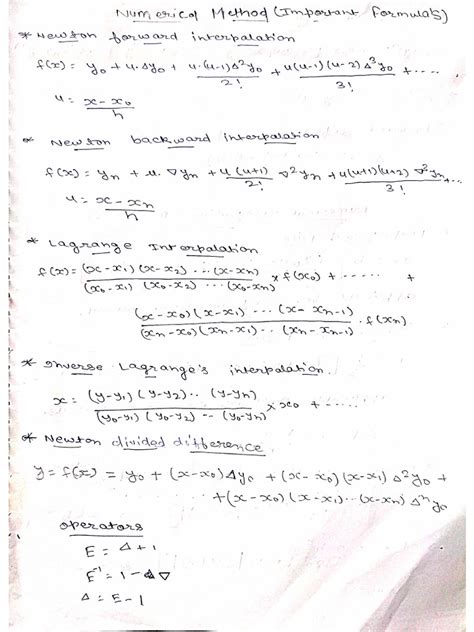 Numerical Method (Important Formula's)
* Newton forward interpalation
f(x) = y₀ + u.Δy₀ + u.(u-1)Δ²y₀/2! + u(u-1)(u-2)Δ³y₀/3! + ....
u = x-x₀/h
* Newton backward interpalation
f(x) = yn + u.∇yn + u(u+1)/2! ∇²yn + u(u+1)(u+2)∇³yn/3! + ...
u = x-xn/h
* Lagrange Interpalation
f(x) = (x-x₁)(x-x₂)...(x-xn)/(x₀-x₁)(x₀-x₂)...(x₀-xn) × f(x₀) + ...... +
(x-x₀)(x-x₁)...(x-xn-1)/(xn-x₀)(xn-x₁)...(xn-xn-1) . f(xn)
* Inverse Lagrange's interpalation.
x = (y-y₁)(y-y₂)..(y-yn)/(y₀-y₁)(y₀-y₂)--(y₀-yn) × x₀ + ....
* Newton divided difference
y = f(x) = y₀ + (x-x₀)Δy₀ + (x-x₀)(x-x₁)Δ²y₀ +
+(x-x₀)(x-x₁)...(x-xn)Δⁿy₀
operators
E = Δ+1
E⁻¹ = 1-∇
Δ = E-1